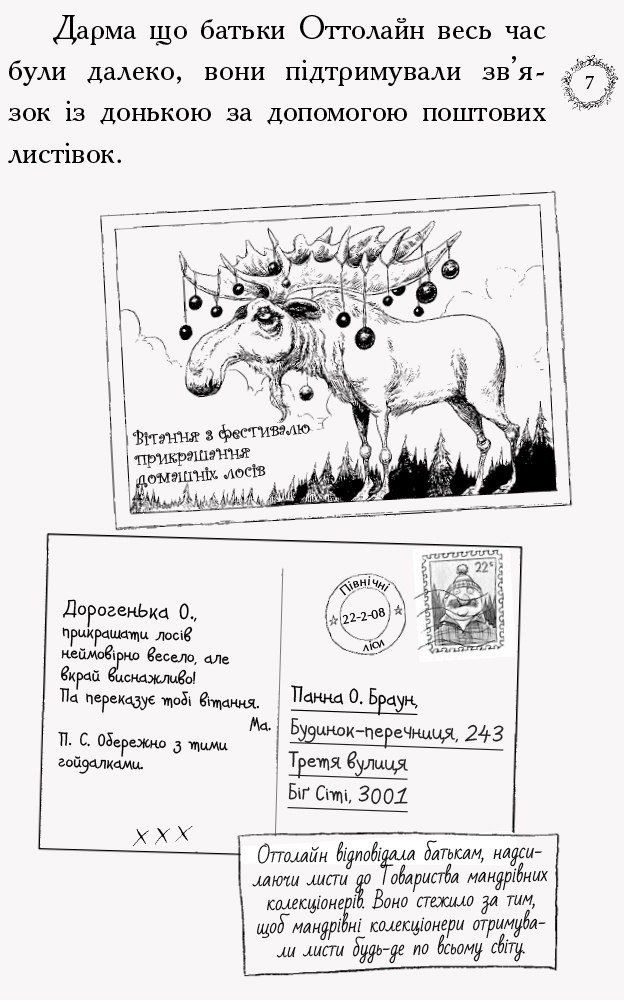 Дарма що батьки Оттолайн весь час
були далеко, вони підтримували зв’я-
зок із донькою за допомогою поштових
листівок.
7
Вітання з фестивалю
прикрашання
домашніх лосів
Дорогенька О.,
прикрашати лосів
неймовірно весело, але
вкрай виснажливо!
Па переказує тобі вітання.
Ма.
П. С. Обережно з тими
гойдалками.
X X X
Північні
22-2-08
ліси
22ᶜ
Панна О. Браун,
Будинок-перечниця, 243
Третя вулиця
Біг Сіті, 3001
Оттолайн відповідала батькам, надси-
лаючи листи до Товариства мандрівних
колекціонерів. Воно стежило за тим,
щоб мандрівні колекціонери отримува-
ли листи будь-де по всьому світу.